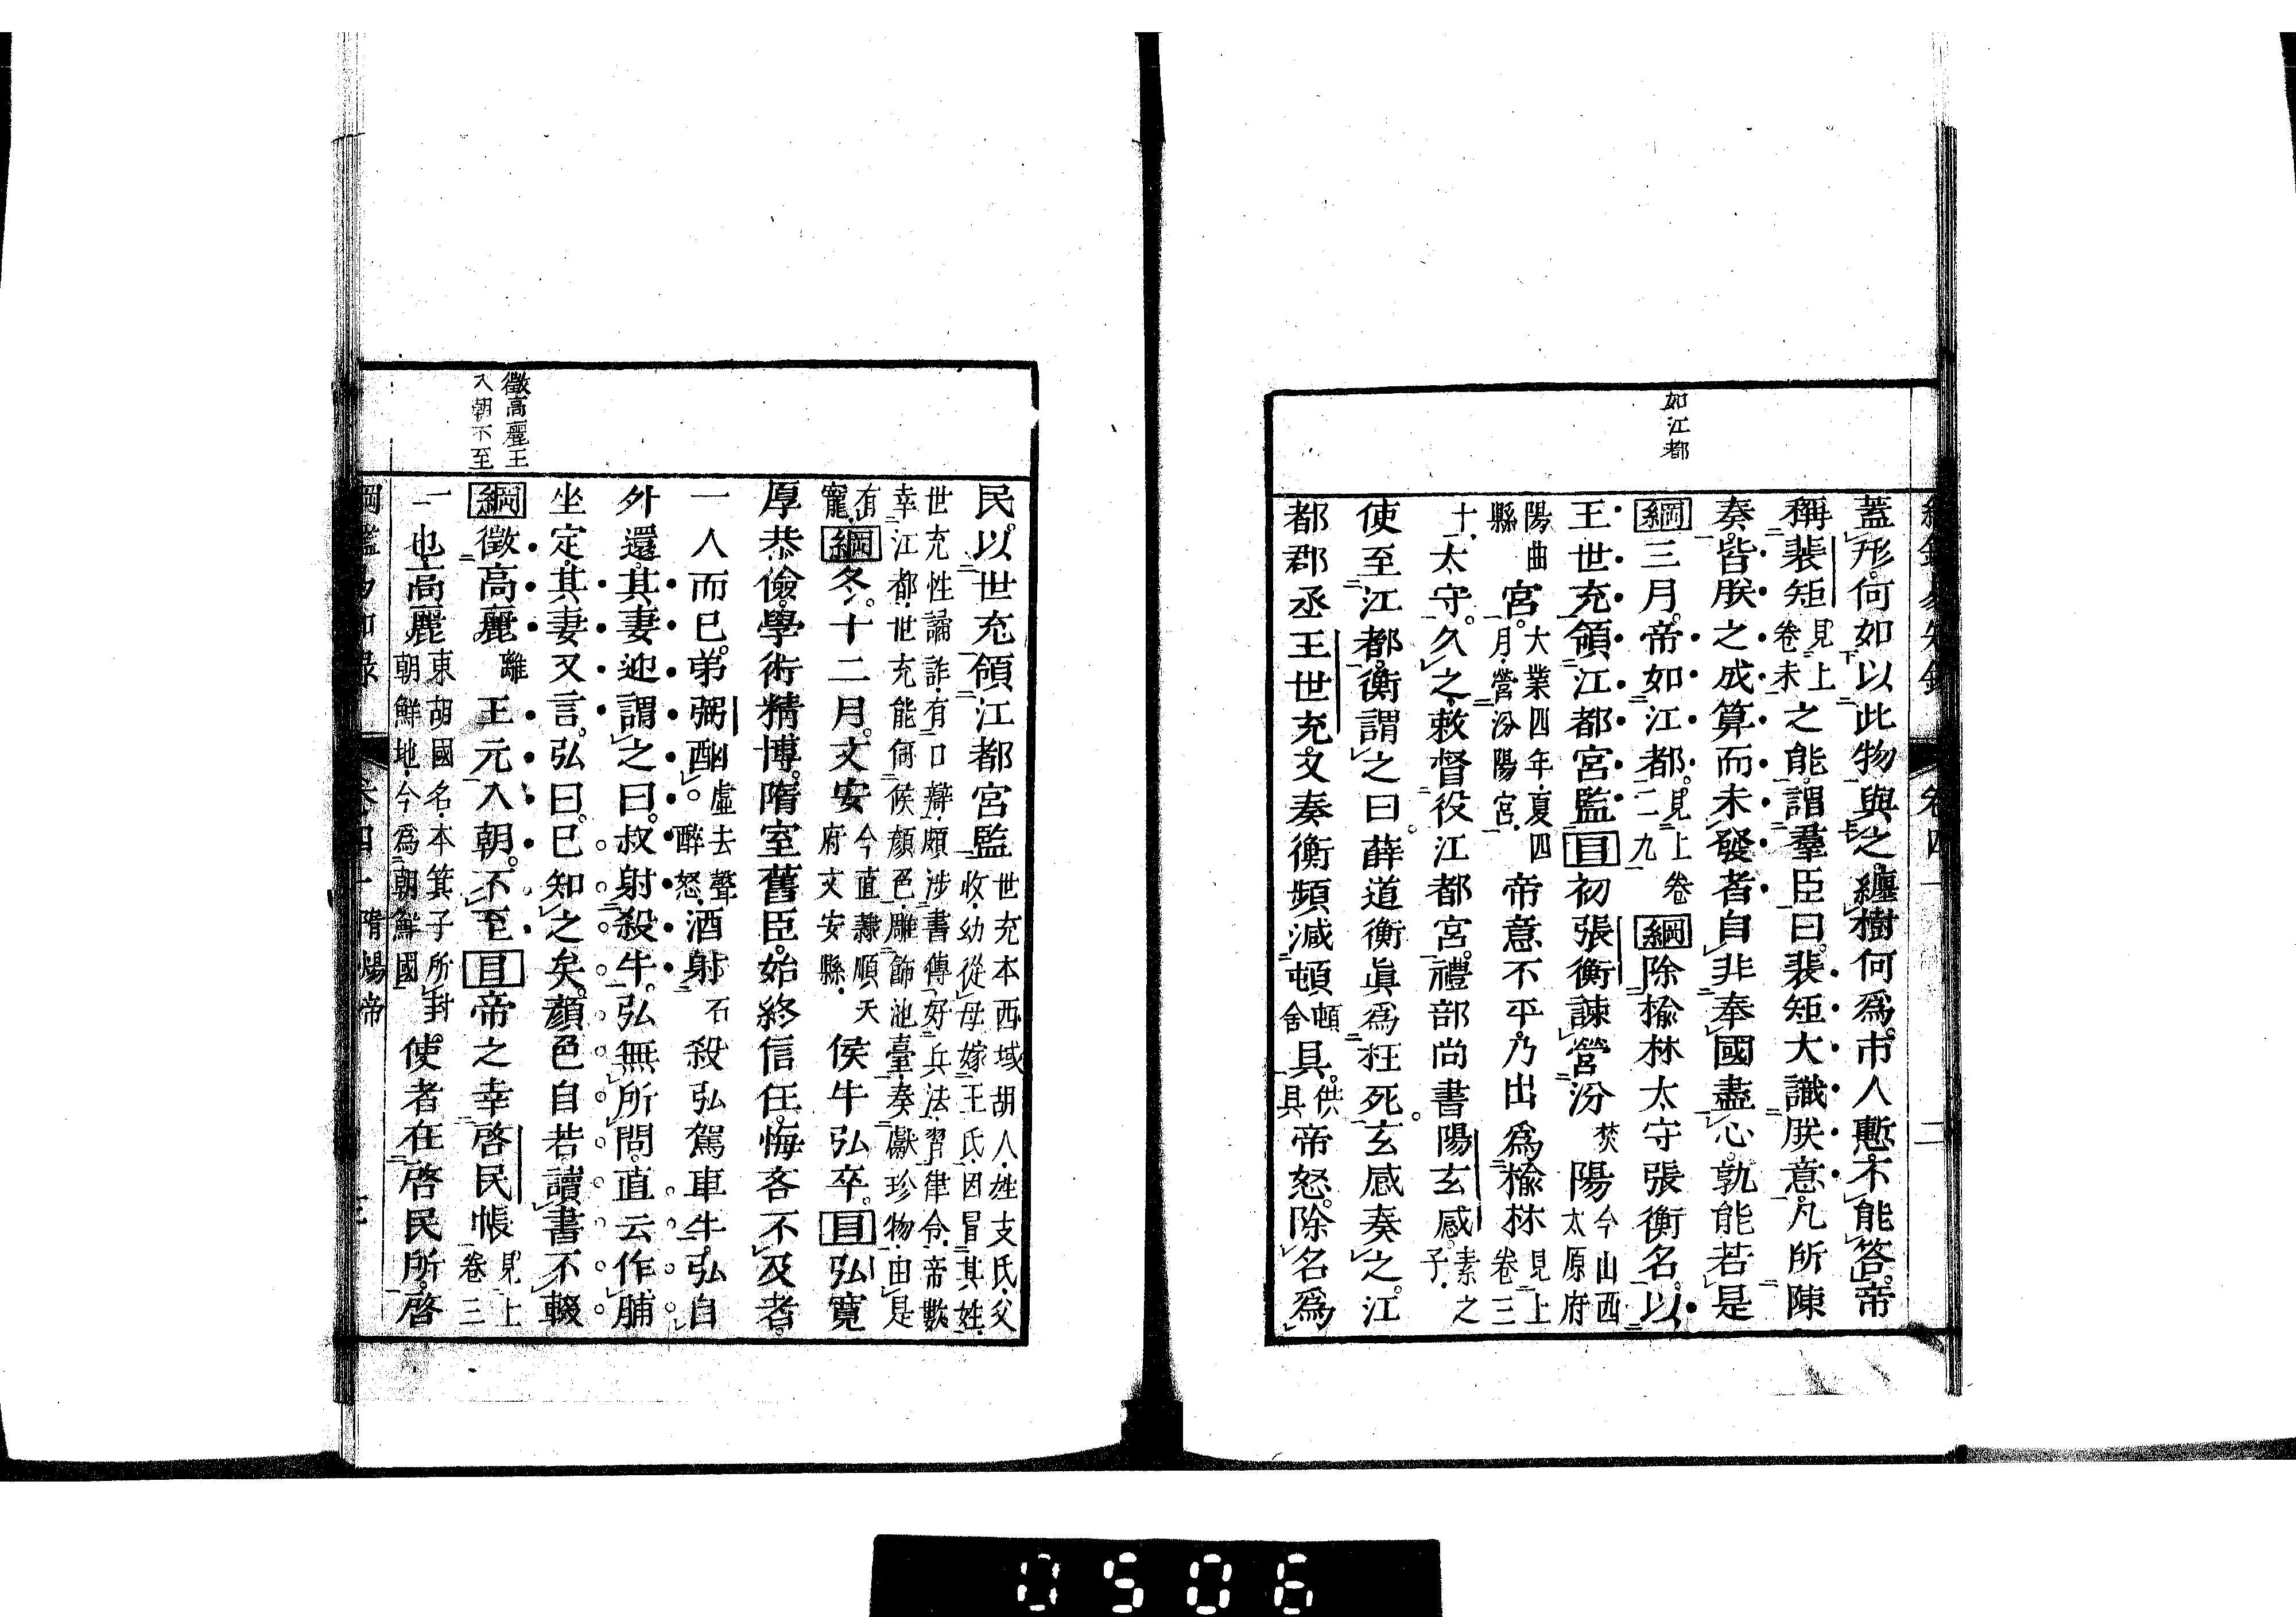 綱鑑易知錄 卷四十一 二
如江都
蓋形。何如以此物與之。纏樹何爲。市人慙不能答。帝
稱裴矩見上卷末之能。謂羣臣曰。裴矩大識朕意。凡所陳
奏。皆朕之成算而未發者。自非奉國盡心。孰能若是
綱三月。帝如江都。見上卷二九綱除榆林太守張衡名。以
王世充領江都宮監目初張衡諫營汾焚陽今山西太原府
陽曲縣宮。大業四年夏四月營汾陽宮帝意不平。乃出爲榆林見上卷三
十太守。久之。敕督役江都宮。禮部尚書陽玄感素之子
使至江都。衡謂之曰。薛道衡眞爲枉死。玄感奏之。江
都郡丞王世充。又奏衡頻減頓頓舍具。供具帝怒。除名爲
民。以世充領江都宮監世充本西域胡人姓支氏父收幼從母嫁王氏因冒其姓
世充性譎詐有口辯頗涉書傳好兵法習律令帝數幸江都世充能伺候顏色雕飾池臺奏獻珍物由是
有寵綱冬。十二月。文安今直隸順天府文安縣侯牛弘卒。目弘寬
厚恭儉。學術精博。隋室舊臣。始終信任。悔吝不及者。
一人而已。弟弼酗虛去聲醉怒酒射石殺弘駕車牛。弘自
外還。其妻迎謂之曰。叔射殺牛。弘無所問。直云作脯
坐定。其妻又言。弘曰。已知之矣。顏色自若。讀書不輟
徵高麗王
入朝不至
綱徵高麗離王元入朝。不至目帝之幸啓民帳見上卷三
一也。高麗東胡國名本箕子所封朝鮮地今爲朝鮮國使者在啓民所。啓
綱鑑易知錄 卷四十一 隋煬帝 三
0506